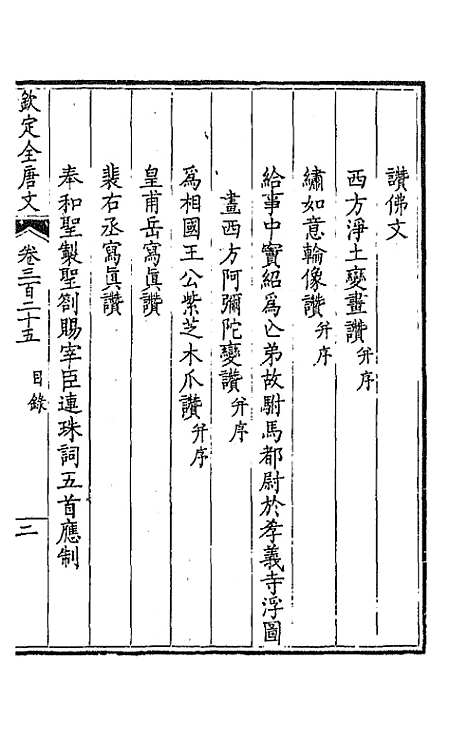 讚佛文
西方淨土變畫讚并序
繡如意輪像讚并序
給事中竇紹為亾弟故駙馬都尉於孝義寺浮圖
畫西方阿彌陀變讚并序
為相國王公紫芝木爪讚并序
皇甫岳寫真讚
裴右丞寫真讚
奉和聖製聖劄賜宰臣連珠詞五首應制
欽定全唐文
卷三百二十五
目錄
二